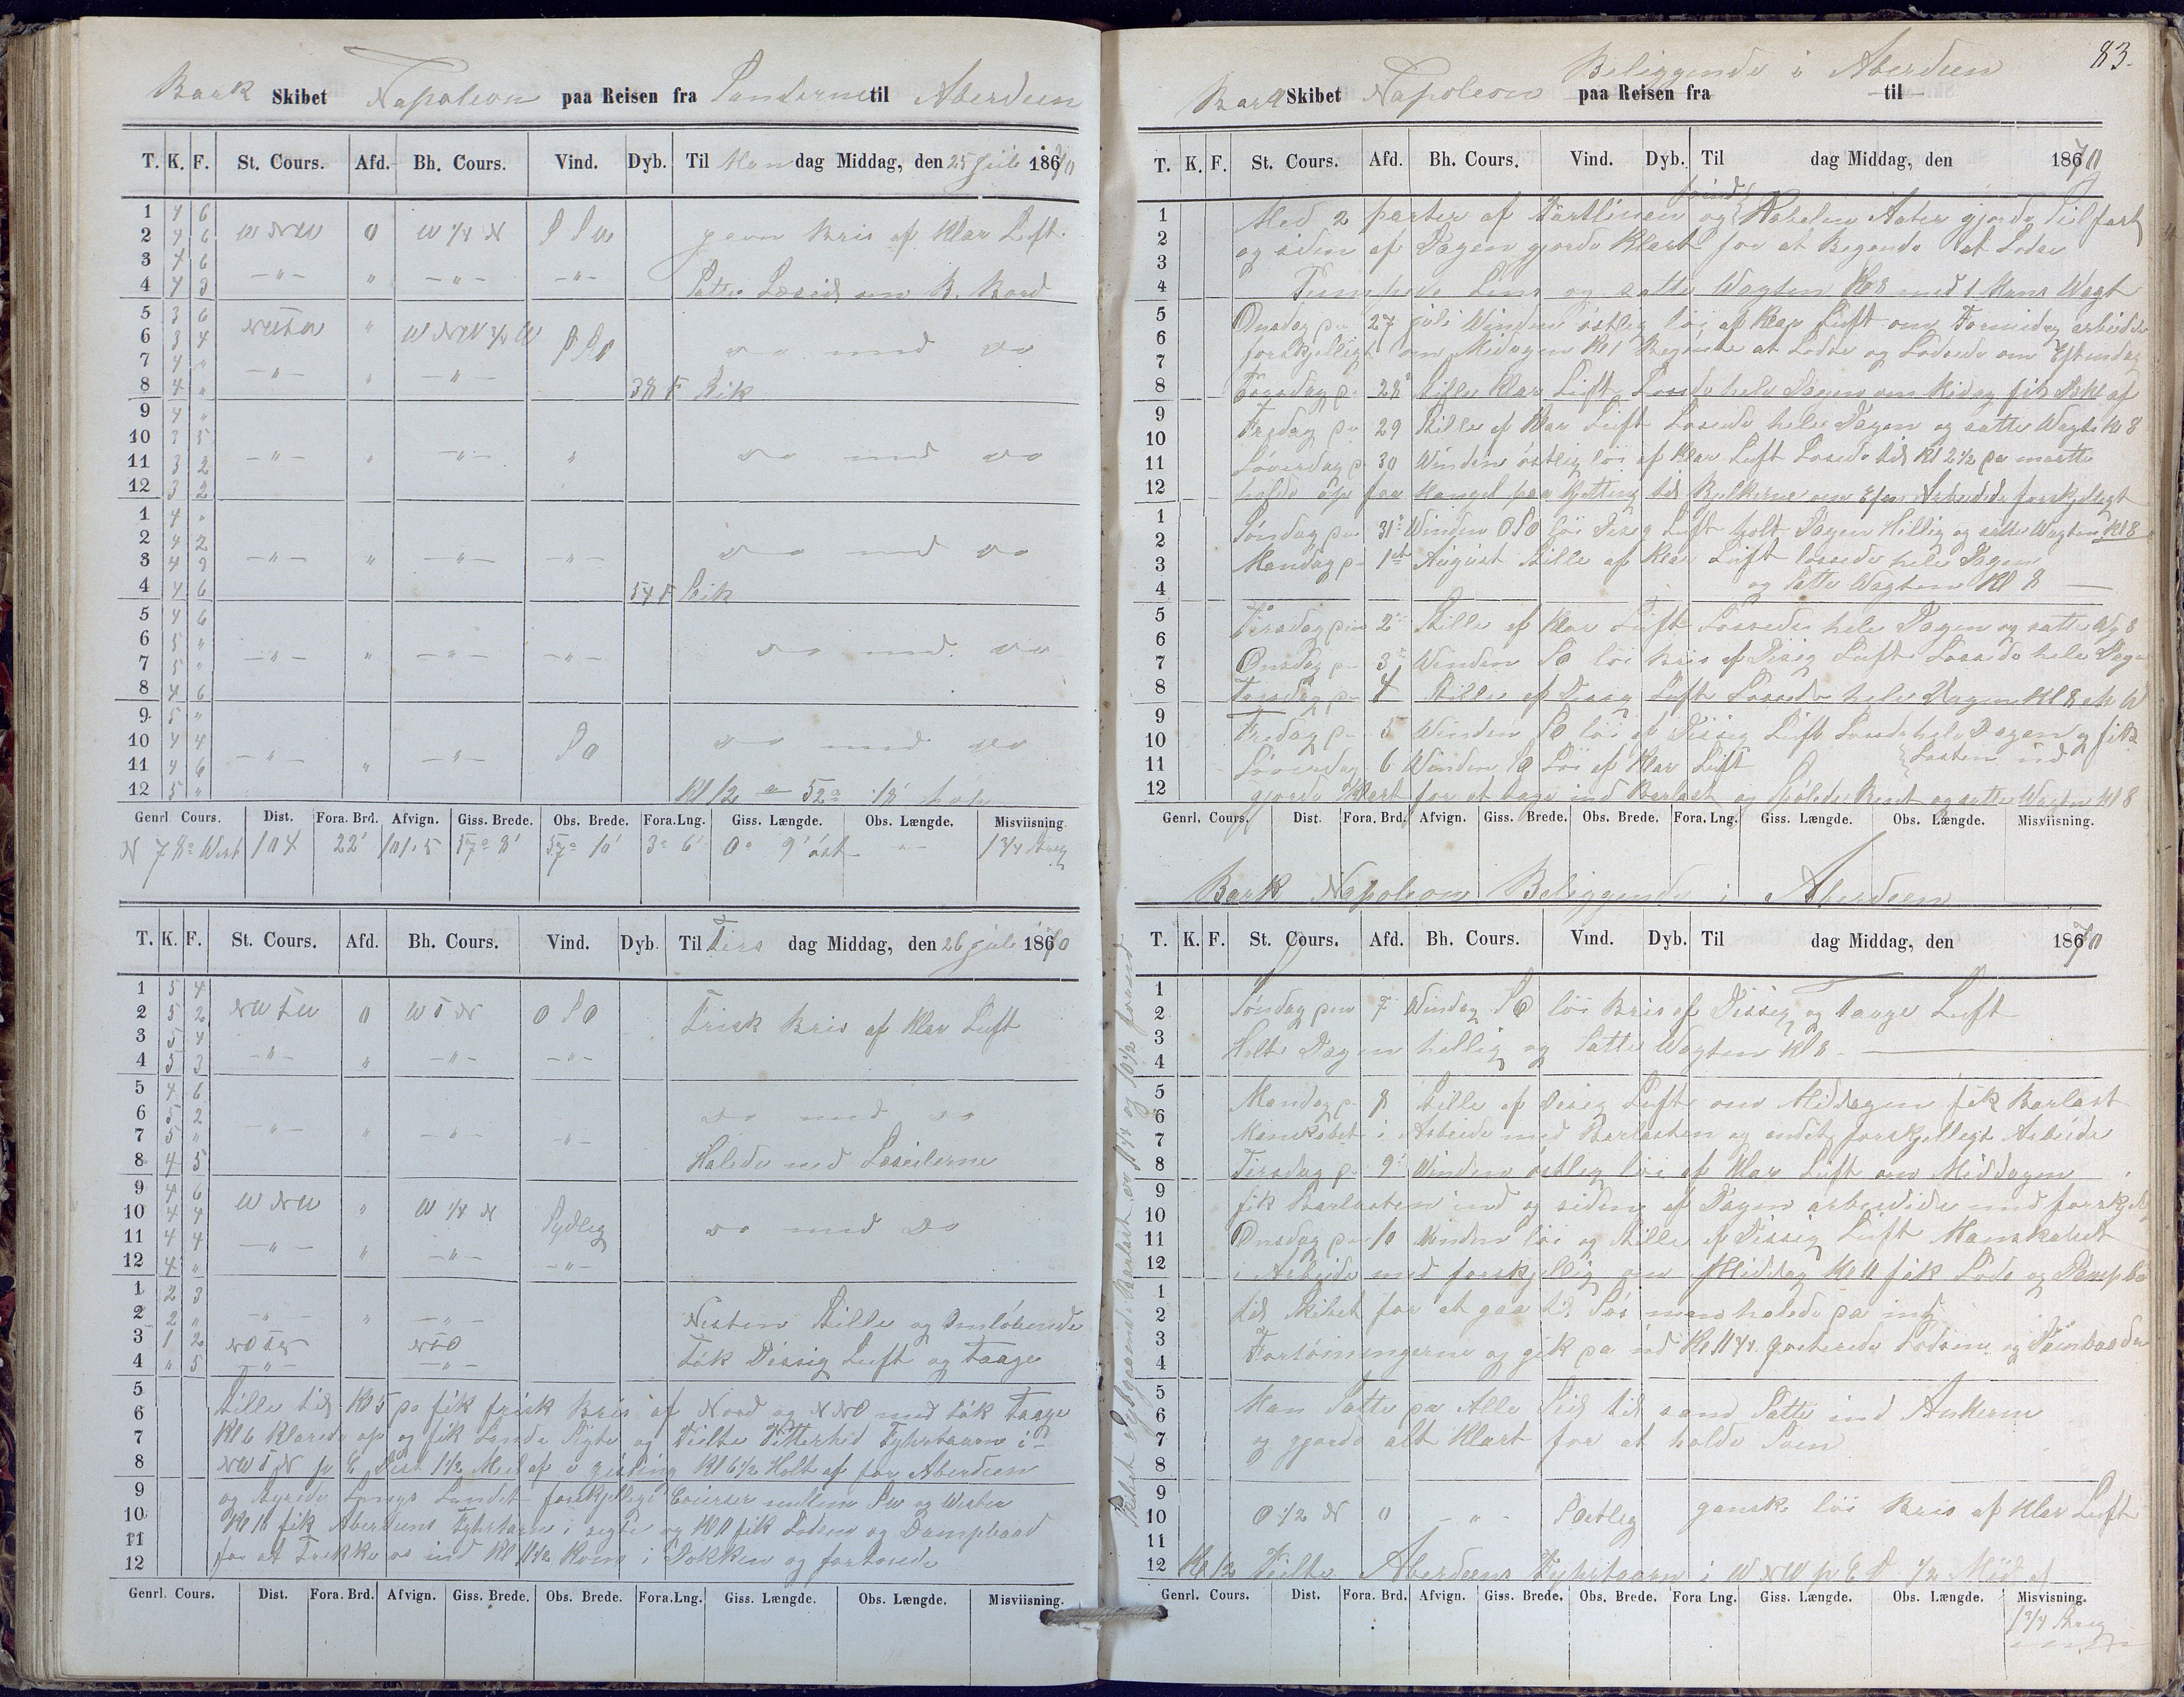 Bark Skibet Napoleon paa Reisen fra til Aberdeen
T. K. F. St. Cours. Afd. Bh. Cours. Vind. Dyb. Til Mandag Middag, den 25 Juli 1870
1 4 6
2 4 6 W NW 0 W 1/4 N S SW jevn Bris af Klar Luft
3 4 6
4 4 3 –"– " –"– –"– Satte Læseil om B. Bord
5 3 6
6 3 4 NWTW " W NW 1/2 W S SO do med do
7 4 "
8 4 " –"– " –"– 38 F Sik
9 4 "
10 3 5
11 3 2 –"– " –"– " do med do
12 3 2
1 4 "
2 4 2
3 4 2 –"– " –"– –"– do med do
4 4 6 54 F Sik
5 4 6
6 5 "
7 5 " –"– " –"– –"– do med do
8 4 6
9 5 "
10 4 4
11 4 6 –"– " –"– SO do med do
12 5 " Kl 12 52° 18'
Genrl. Cours. Dist. Fora. Brd. Afvign. Giss. Brede. Obs. Brede. Fora.Lng. Giss. Længde. Obs. Længde. Misviisning.
N 78° West 104 22' 101.5 57° 8' 57° 10' 3° 6' 0° 9' öst –"– 1 3/4 Streg
T. K. F. St. Cours. Afd. Bh. Cours. Vind. Dyb. Til Tirsdag Middag, den 26 Juli 1870
1 5 4
2 5 2 NWTW 0 WTN O SO Frisk Bris af Klar Luft
3 5 4
4 5 3 –"– " –"– –"–
5 4 6
6 5 2 do med do
7 5 " –"– " –"– –"–
8 4 5 Halede ned Læseilerne
9 4 6
10 4 4 W NW " W 1/4 N Sydlig do med do
11 4 4
12 4 " –"– " –"– –"–
1 2 3
2 2 " –"– " –"– Nesten Stille og Omløbende
3 1 2 NOTN NTO
4 " 5 –"– –"– Tök Dissig Luft og Taage
5 Stille til Kl 5 da fik frisk Bris af Nord og NNO med tök Taage
6
7 Kl 6 Klarede op og fik Lande Sigte og Peilte Fyhrtaarn i
8 NWTN p C Dist 1 1/2 Miil af gisning Kl 6 1/2 Holt af for Aberdeen
9 og styrede Langs Landet forskjellige Courser mellem SW og Wester
10 Kl 10 fik Aberdeens Fyhrtaarn i sigte og Kl 11 fik Lodsen og Dampbaad
11
12 for at Trekke os ind Kl 11 1/2 kom i Dokken og fortöiede
Genrl. Cours. Dist. Fora. Brd. Afvign. Giss. Brede. Obs. Brede. Fora.Lng. Giss. Længde. Obs. Længde. Misviisning.
83.
Beliggende i Aberdeen
Bark Skibet Napoleon paa Reisen fra til
T. K. F. St. Cours. Afd. Bh. Cours. Vind. Dyb. Til dag Middag, den 1870
1 Med 2 parter af og Kabelen Agter gjorde Seil fast
2 og siden af Dagen gjorde Klart for at Begynde at Losse
3
4 Pumpede Lens og satte Wagten Kl 8 med 1 Mans Wagt
5 Onsdag den 27 Juli Winden östlig löi af Klar Luft om Formidag arbeidede
6 forskjelligt om Midagen Kl 1 Begynte at Losse og Lossede om Eftmidag
7
8 Torsdag d. 28 Stille Klar Luft Lossede hele Dagen om Midag fik af
9 Fredag den 29 Stille af Klar Luft Lossede hele Dagen og satte Wagte Kl 8
10
11 Löverdag d. 30 Winden östlig löi af Klar Luft Lossede til Kl 2 1/2 da maatte
12 holde op for Mangel paa til om Efm Arbeidede forskjelligt
1 Söndag den 31 Winden OSO löi Disig Luft holt Dagen Hillig og satte Wagten Kl 8
2
3 Mandag d. 1st August Stille af Klar Luft lossede hele Dagen
4 og Satte Wagten Kl 8
5 Tirsdag den 2 Stille af Klar Luft Lossede hele Dagen og satte Wg 8
6
7 Onsdag d. 3 Winden SO löi Bris af Disig Luft Lossede hele Dage
8 Torsdag den 4 Stille af Disig Luft Lossede hele Dagen Kl 8 W
9 Fredag d. 5 Winden SO löi af Dissig Luft Lossede hele Dagen og fik
10
11 Löverdag 6 Winden SO Löi af Klar Luft Lasten ud
12 gjorde Klart for at tage ind Barlast og Spölede Rent og satte Wagten Kl 8
Genrl. Cours. Dist. Fora. Brd. Afvign. Giss. Brede. Obs. Brede. Fora. Lng. Giss. Længde. Obs. Længde. Misviisning.
Bark Napoleon Beliggende i Aberdeen
T. K. F. St. Cours. Afd. Bh. Cours. Vind. Dyb. Til dag Middag, den 1870
1 Söndag den 7 Winden SO löi Bris af Dissig og Taage Luft
2
3 Holt Dagen hellig og Satte Wagten Kl 8
4
5 Mandag d. 8 Stille af Disig Luft om Middagen fik Barlast
6
7 Manskabet i Arbeide med Barlasten og andet forskjelligt Arbeide
8 Tirsdag d. 9 Winden östlig löi af Klar Luft om Middagen
9 fik Barlasten ind og siden af Dagen arbeidede med forskjellig
10
11 Onsdag den 10 Winden löi og Stille af Dissig Luft Manskabet
12 i Arbeide med forskjellig om Middag Kl 11 fik Lods og Dampbaa
1 til Skibet for at gaa til Söes man halede da ind
2
3 Fortöiningerne og gik da ud Kl 11 3/4 qvitterede Lodsen og Dambaaden
4
5 Man Satte da Alle Seil til samt Satte ind Ankerne
6
7 og gjorde alt Klart for at holde Söen
8
9
10 O 1/2 N 0 –"– SOstlig ganske löi Bris af Klar Luft
11
12 Kl 12 Peilte Aberdeens Fyhrtaarn i W NW p C D 1/2 Miil af
Genrl. Cours. Dist. Fora. Brd. Afvign. Giss. Brede. Obs. Brede. Fora Lng. Giss. Længde. Obs. Længde. Misvisning.
1 3/4 Streg
Skibet Dybgaaende Barlast er 11 1/4 og 10 1/2 forud